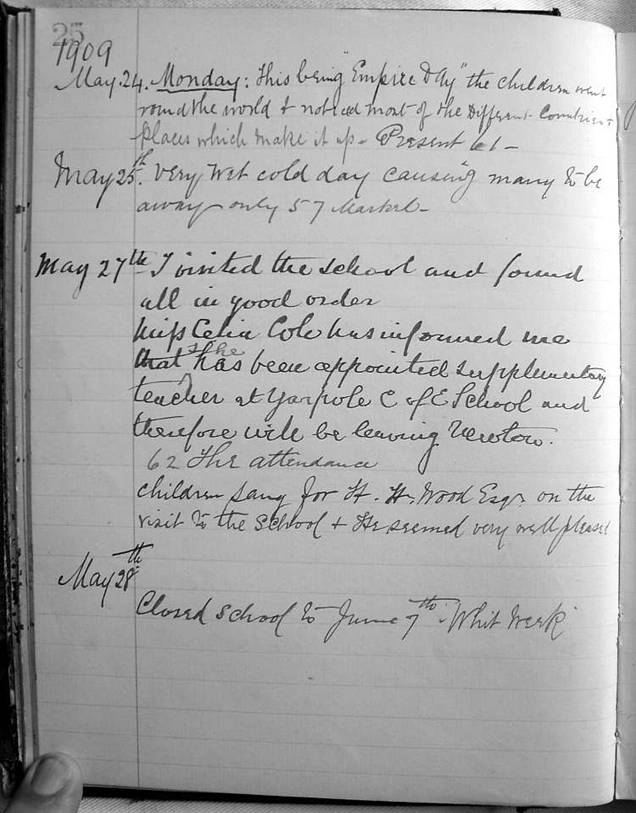 25
1909
May.24. Monday: This being "Empire Day" the children went
round the world & noticed most of the Different Countries &
Places which make it up - Present 61 -
May 25th. Very wet cold day causing many to be
away - only 57 Marked -
May 27th - I visited the school and found
all in good order
Miss Celia Cole has informed me
that she has been appointed supplementary
teacher at Yarpole C of E School and
therefore will be leaving Newton.
62 The attendance
children sang for H. H. Wood Esqr. on the
visit to the School & He seemed very well pleased
May 28th
Closed School to June 7th "Whit Week"